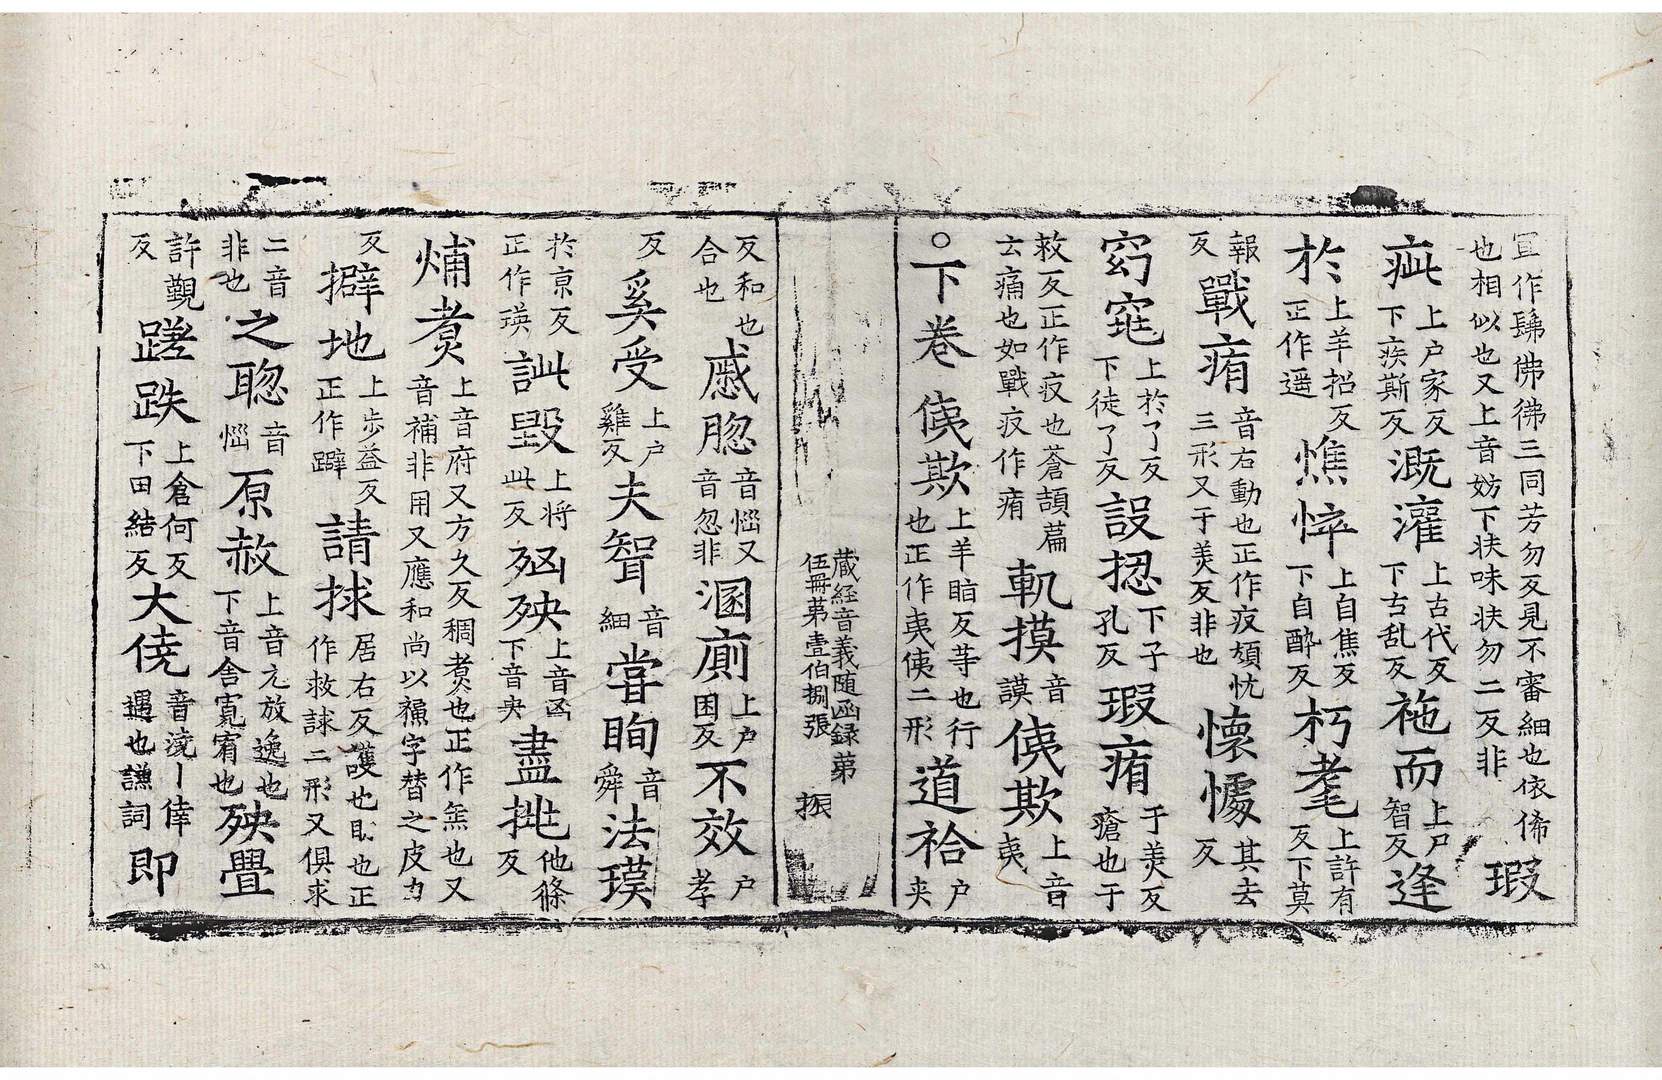 冝作髴佛彿三同芳勿反見不審細也依俙
也相似也又上音妨下扶味扶勿二反非 瑕
疵上户家反下疾斯反 溉灌上古代反下古乱反 袘而上户智反 逢
於上羊招反正作遥 憔悴上自焦反下自醉反 朽耄上許有反下莫
報反 戰痏音右動也正作疫頄忧三形又于美反非也 懐懅其去反
窈窕上於了反下徒了反 設揔下子孔反 瑕痏于美反瘡也于
救反正作疫也蒼頡篇云痛也如戰疫作痏 軌摸音謨 侇欺上音夷
○下卷 侇欺上羊脂反䓁也行也正作夷侇二形 道袷户夾
反和也合也 慼脃音惱又音忽非 溷廁上户困反 不效户孝
反 奚受上户雞反 夫聟音細 甞眴音舜 法瑛
於京反正作瑛 訿毀上将此反 㱾殃上音凶下音央 盡挑他條反
㷆煑上音府又方久反稠煑也正作缹也又音補非用又應和尚以䆀字替之皮力
反 擗地上步益反正作躃 請捄居右反護也助也正作救訹二形又俱求
二音非也 之聦音惱 原赦上音元放逸也下音舎寛宥也 殃舋
許覲反 蹉跌上倉何反下田結反 大僥音澆丨倖遇也謙詞 即
藏經音義随函録第伍冊第壹伯捌張 振